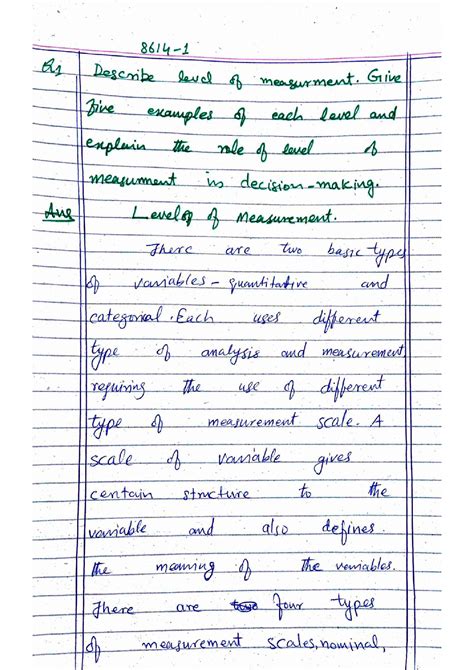 8614-1
Q1 Describe level of measurment. Give
five examples of each level and
explain the role of level of
measurment in decision-making.
Ans Level of of Measurement.
There are two basic types
of variables - quantitative and
categorial. Each uses different
type of analysis and measurement,
requiring the use of different
type of measurement scale. A
scale of variable gives
certain structure to the
variable and also defines
the meaning of the variables.
There are four types
of measurement scales, nominal,